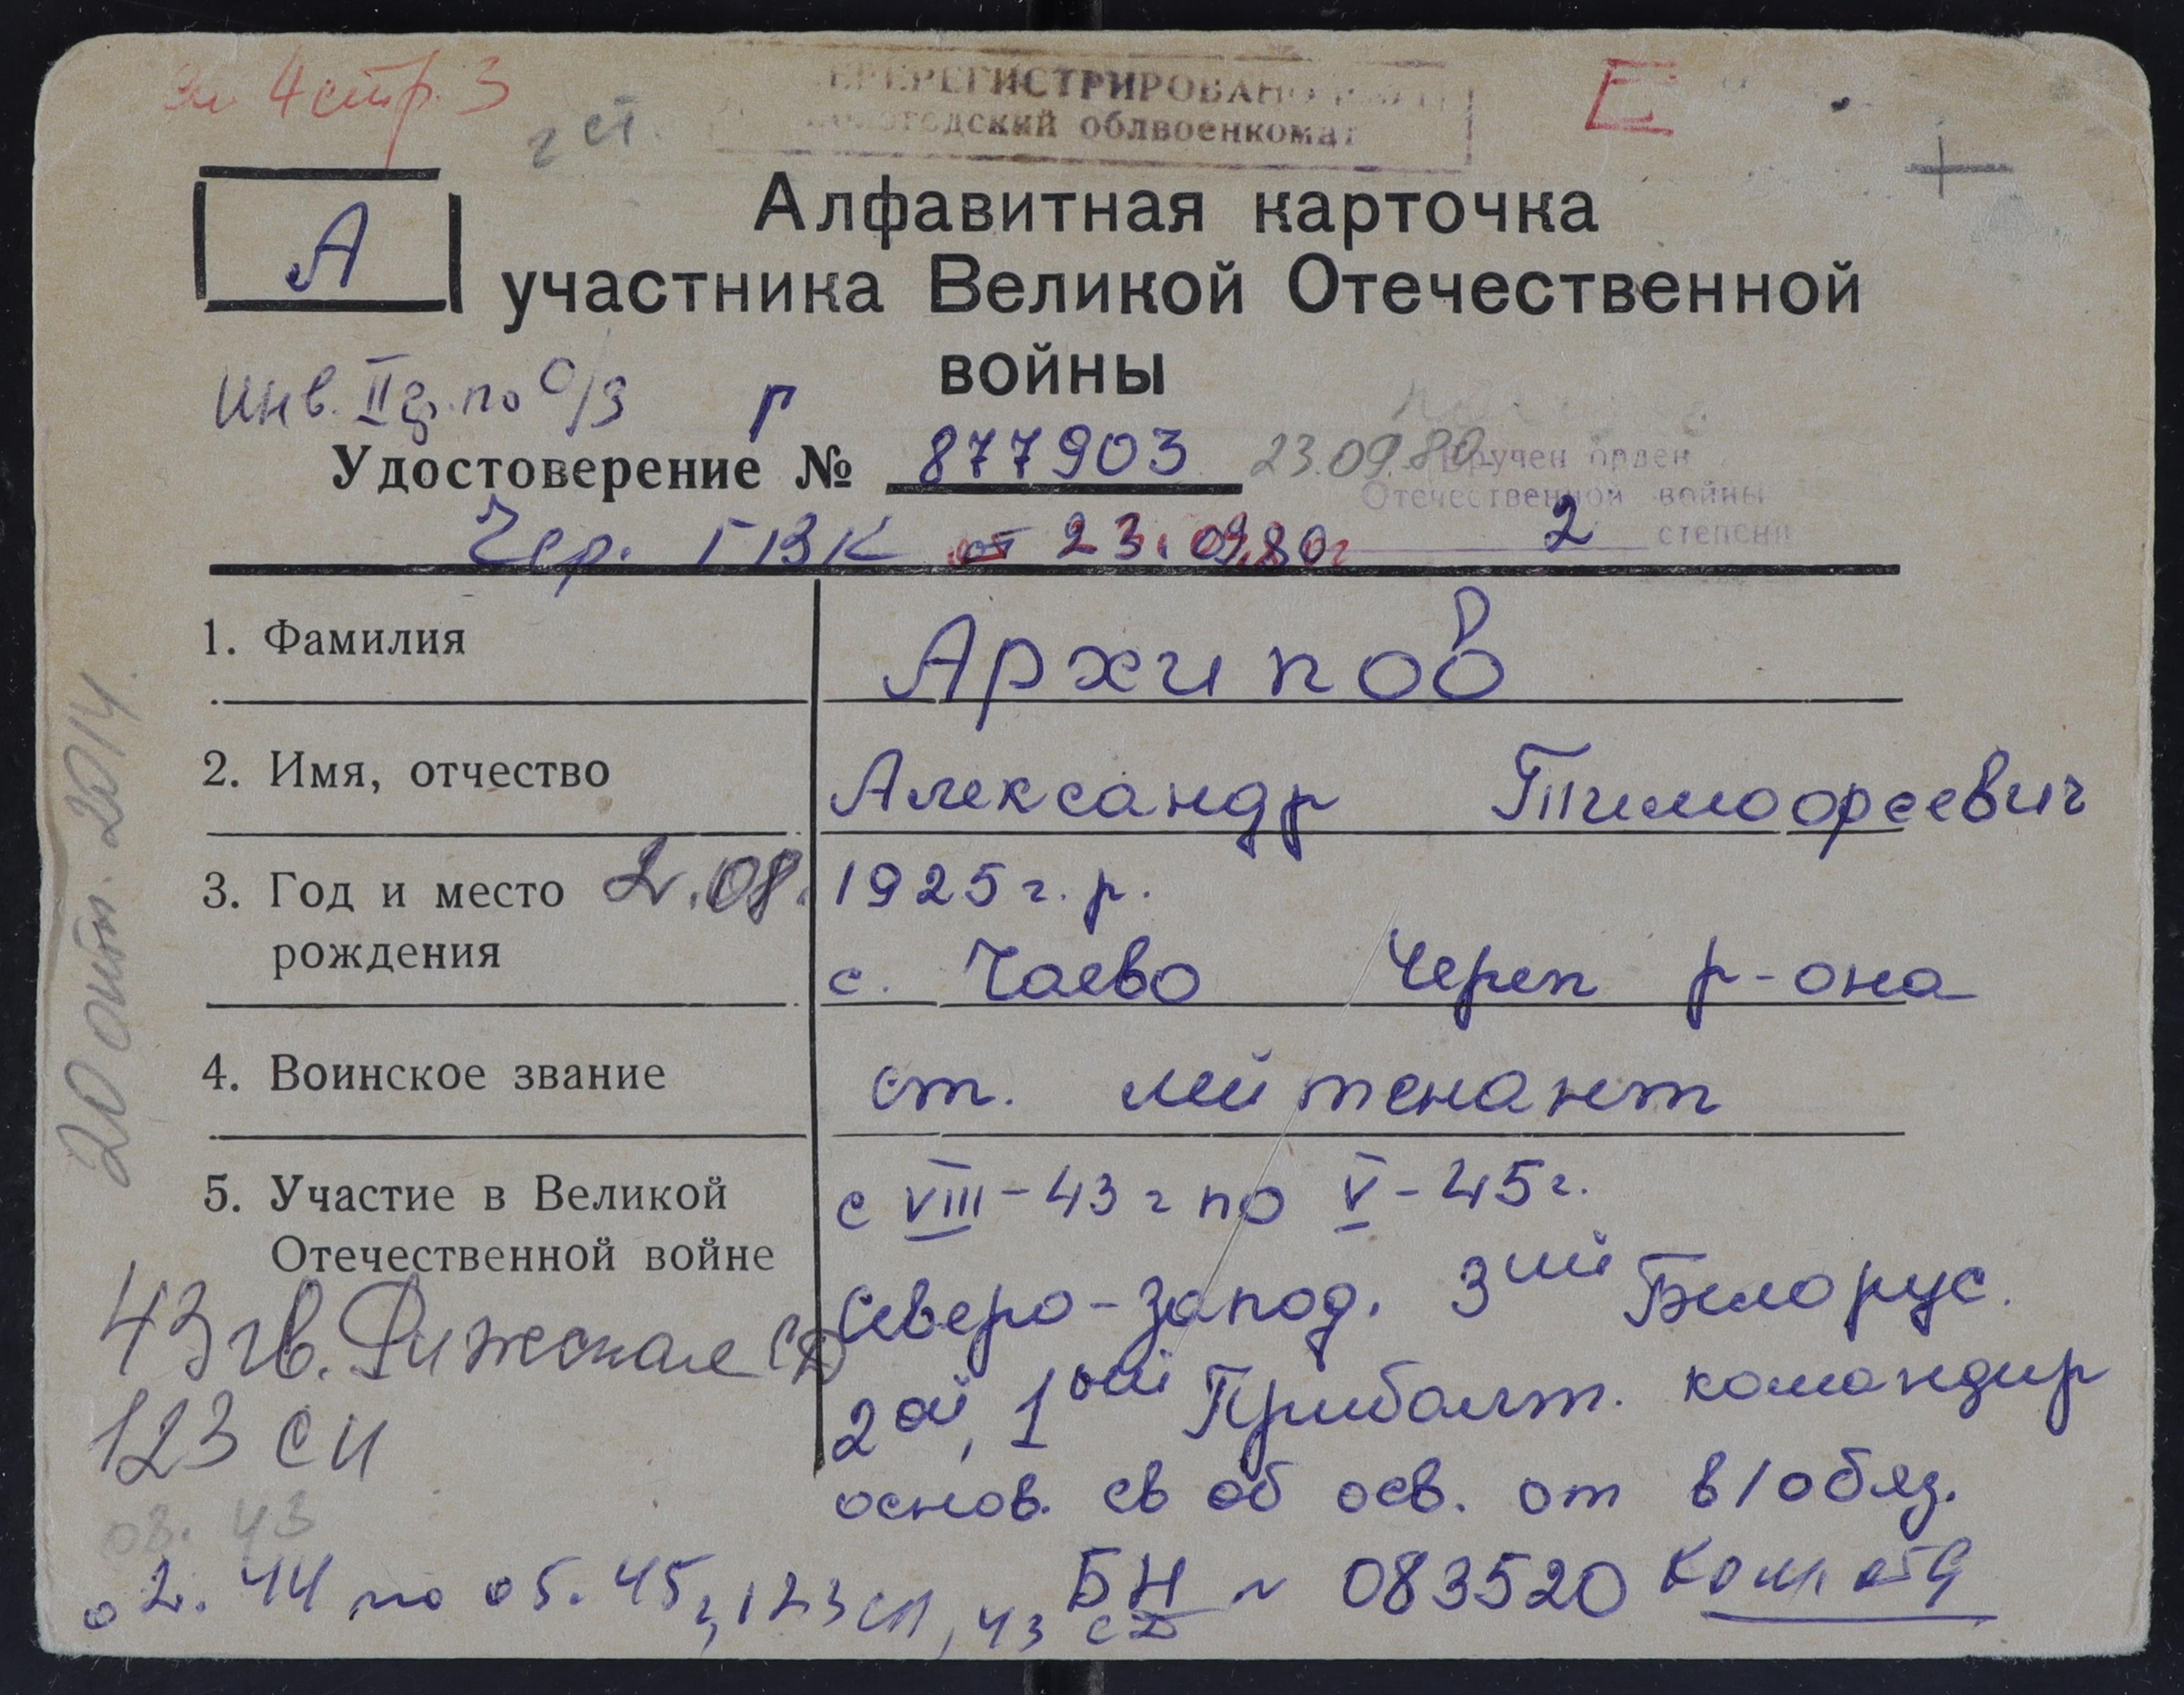 4 стр. 3
ПЕРЕРЕГИСТРИРОВАНО
облвоенкомат
Е
г ст.
+
А
Алфавитная карточка
участника Великой Отечественной
войны
Инв. II гр. по о/з г
Удостоверение № 877903 23.09.80
Вручен орден
Отечественной войны
2 степени
Чер. ГВК от 23.09.80г
1. Фамилия Архипов
2. Имя, отчество Александр Тимофеевич
3. Год и место рождения 2.08. 1925 г. р.
с. Чаево Череп р-она
4. Воинское звание ст. лейтенант
5. Участие в Великой Отечественной войне с VIII-43 г по V-45 г.
Северо-запад. 3ий Белорус.
2ой, 1ой Прибалт. командир
основ. св об осв. от в/обяз.
БН № 083520 Ком отд
43 гв. Рижская СД
123 СП
08. 43
02. 44 по 05. 45, 123 СП, 43 СД
20 2014